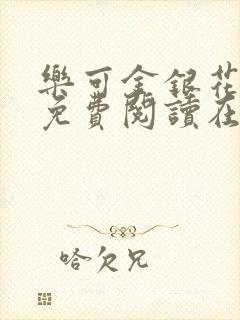 樂可金銀花
免費閱讀在
哈欠兄